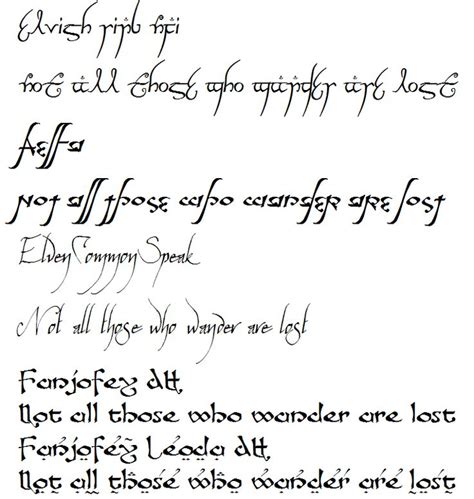 elvish ring nfi
not all those who wander are lost
Aella
not all those who wander are lost
ElvenCommonSpeak
Not all those who wander are lost
Fanjofey AH
Not all those who wander are lost
Fanjofey Leoda AH
Not all those who wander are lost